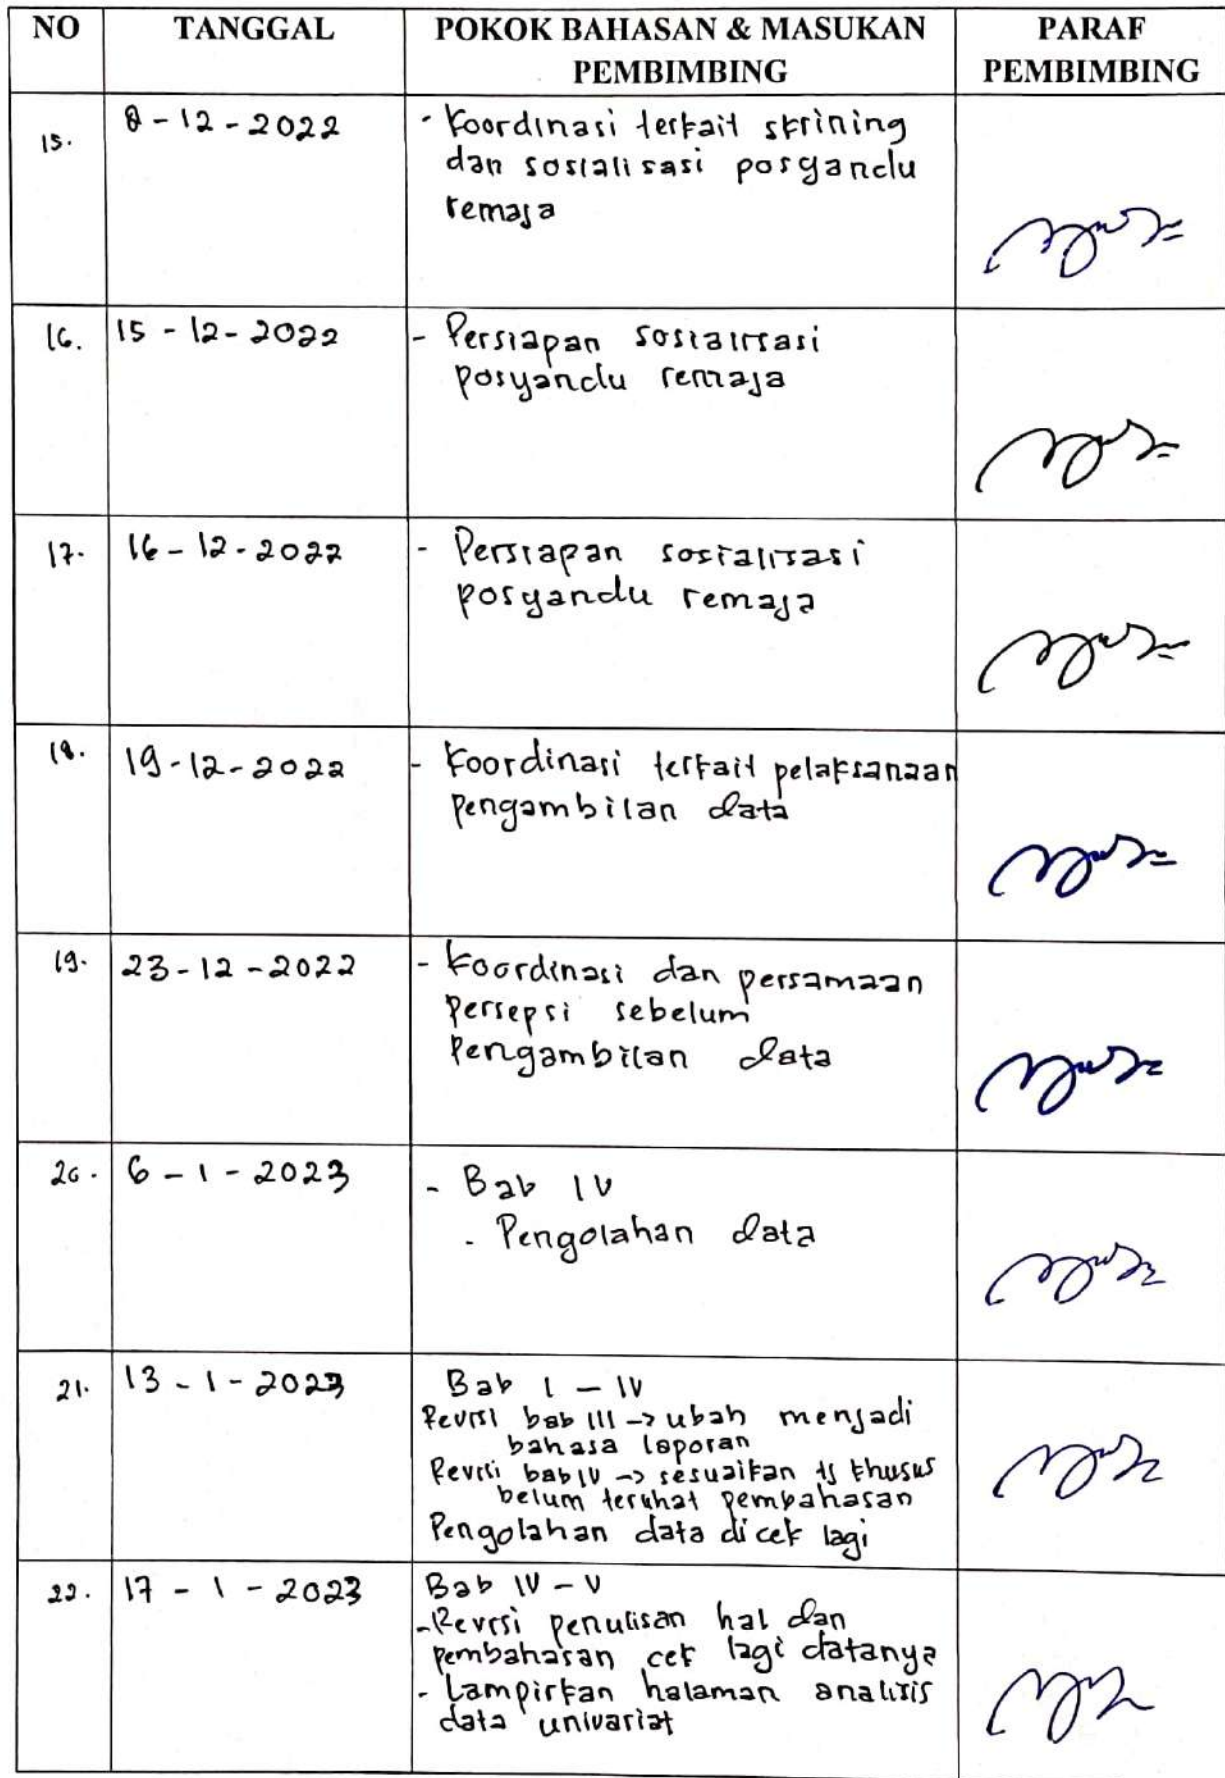 NO TANGGAL POKOK BAHASAN & MASUKAN PARAF
PEMBIMBING PEMBIMBING
15. 8-12-2022 - Koordinasi terkait skrining
dan sosialisasi posyandu
remaja
16. 15-12-2022 - Persiapan sosialisasi
posyandu remaja
17. 16-12-2022 - Persiapan sosialisasi
posyandu remaja
18. 19-12-2022 - Koordinasi terkait pelaksanaan
pengambilan data
19. 23-12-2022 - Koordinasi dan persamaan
persepsi sebelum
pengambilan data
20. 6-1-2023 - Bab IV
- Pengolahan data
21. 13-1-2023 Bab I - IV
Revisi bab III -> ubah menjadi
bahasa laporan
Revisi bab IV -> sesuaikan khusus
belum terlihat pembahasan
Pengolahan data dicek lagi
22. 17-1-2023 Bab IV - V
- Revisi penulisan hal dan
pembahasan cek lagi datanya
- Lampirkan halaman analisis
data univariat